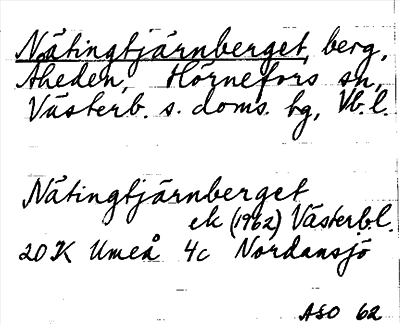 Nätingtjärnberget, berg,
Åheden, Hörnefors sn,
Västerb. s. doms. hg, Vb. l.
Nätingtjärnberget
ek (1962) Västerb.l.
20K Umeå 4c Nordansjö
ASO 62